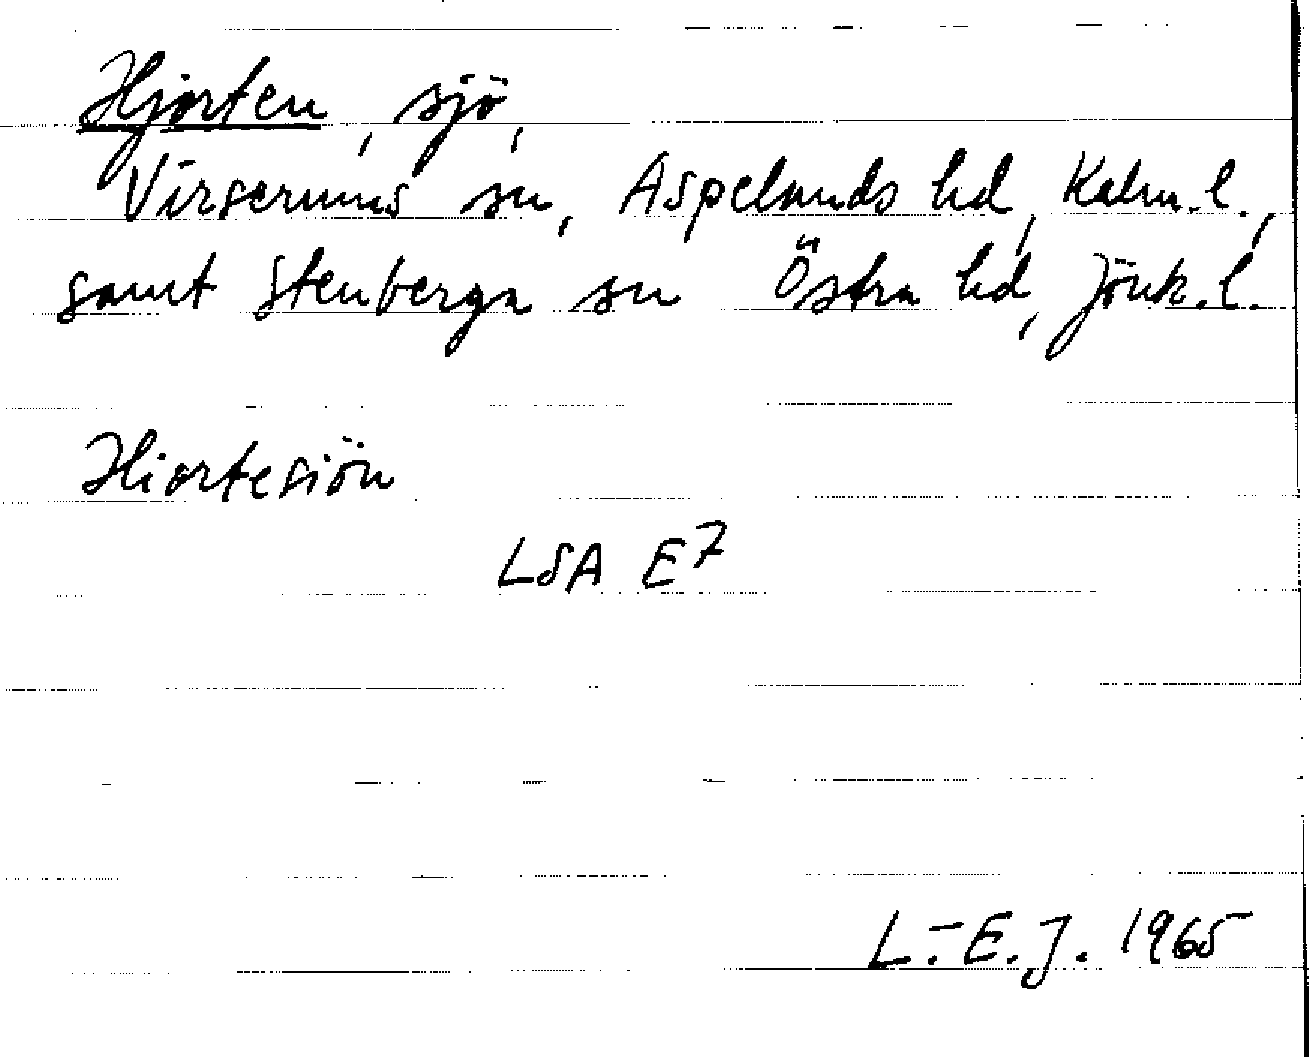 Hjorten, sjö,
Virserums sn, Aspelands hd, Kalm.l.,
samt Stenberga sn Östra hd, Jönk.l.
Hiortesiön
LSA E7
L.-E.J. 1965